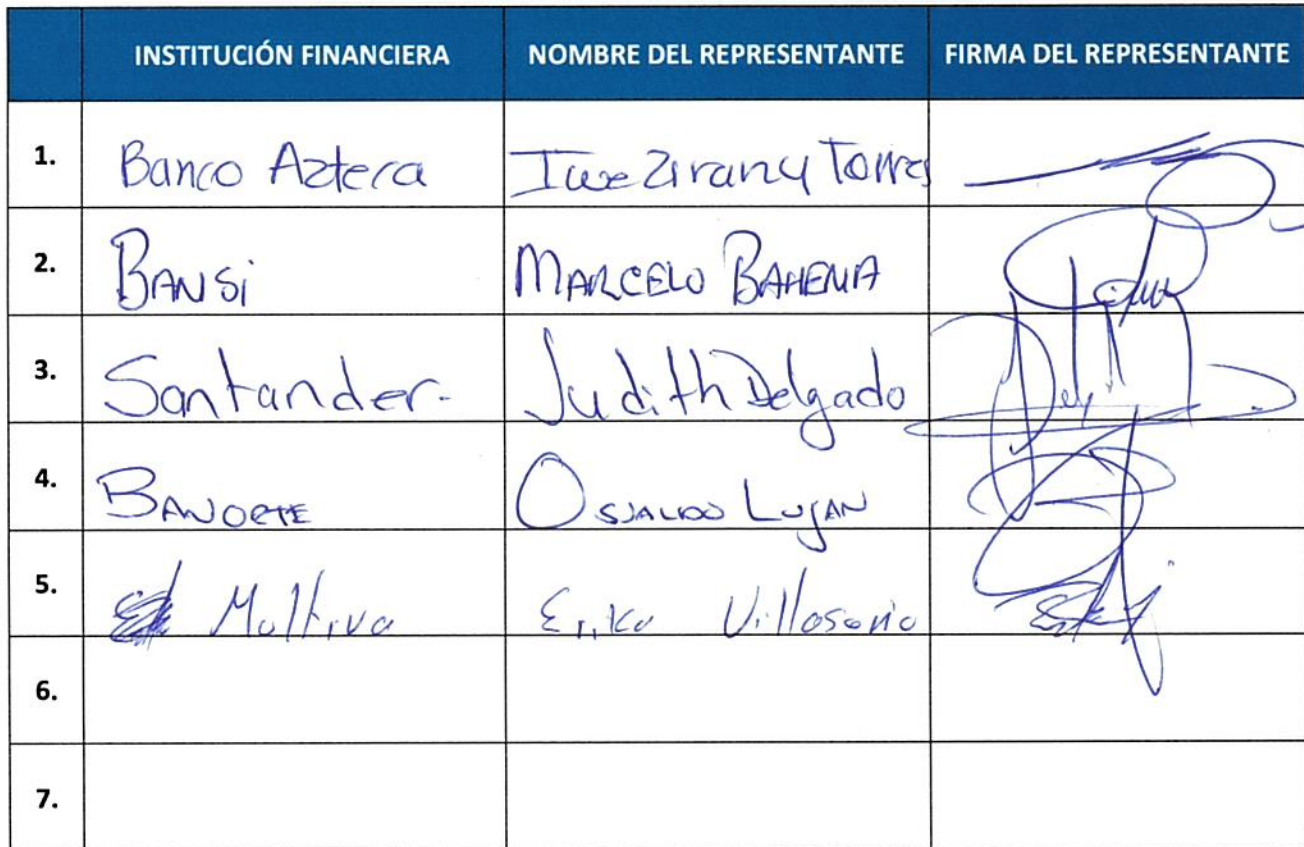 INSTITUCIÓN FINANCIERA NOMBRE DEL REPRESENTANTE FIRMA DEL REPRESENTANTE
1. Banco Azteca Torres
2. BANSi MARCELO BAHENA
3. Santander. Judith Delgado
4. BANORTE OSVALDO LUJAN
5. Multiva Erika Villasana
6.
7.